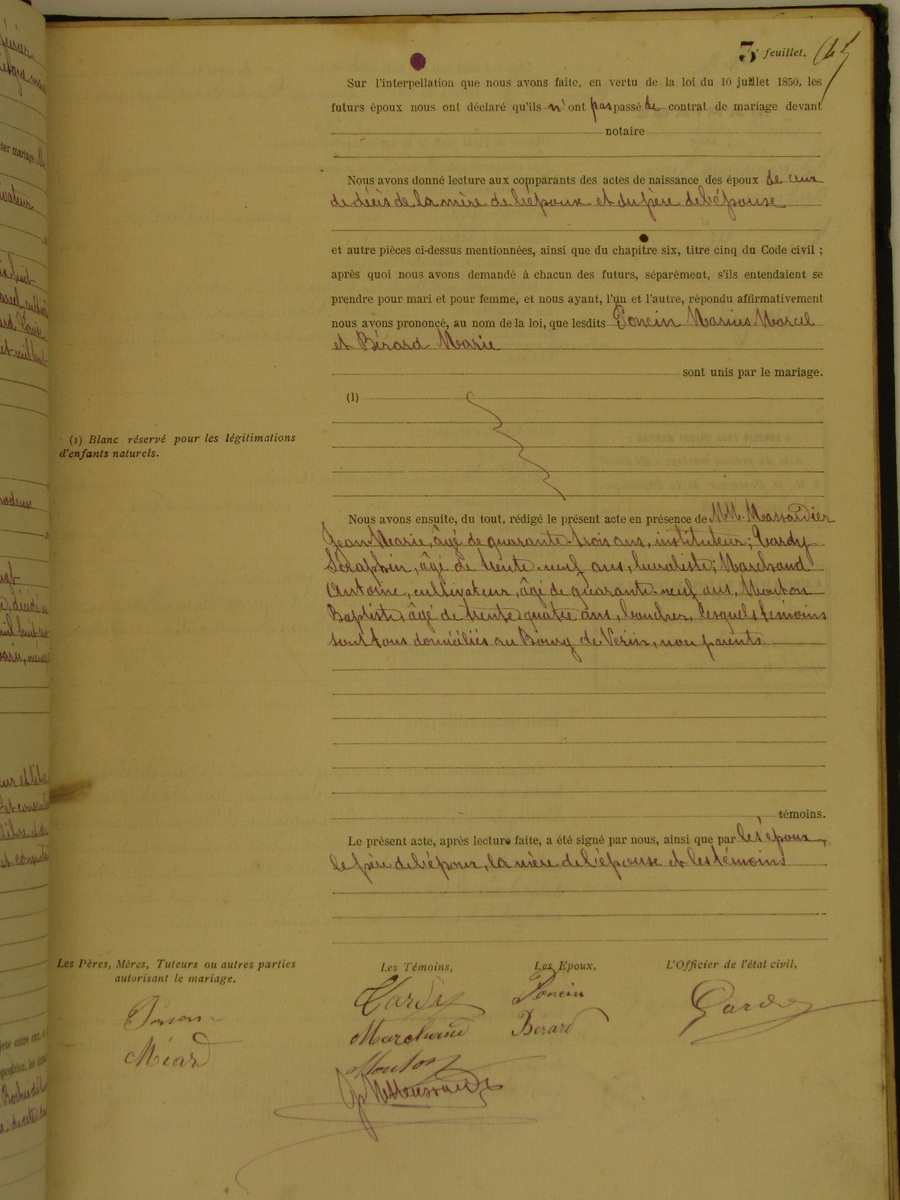 3e feuillet.
Sur l'interpellation que nous avons faite, en vertu de la loi du 10 juillet 1850, les
futurs époux nous ont déclaré qu'ils n'ont pas passé de contrat de mariage devant
notaire
Nous avons donné lecture aux comparants des actes de naissance des époux de ceux
de décès de la mère de l'époux et du père de l'épouse
et autre pièces ci-dessus mentionnées, ainsi que du chapitre six, titre cinq du Code civil ;
après quoi nous avons demandé à chacun des futurs, séparément, s'ils entendaient se
prendre pour mari et pour femme, et nous ayant, l'un et l'autre, répondu affirmativement
nous avons prononcé, au nom de la loi, que lesdits Poncin Marius Marcel
et Bérard Marie
sont unis par le mariage.
(1)
(1) Blanc réservé pour les légitimations
d'enfants naturels.
Nous avons ensuite, du tout, rédigé le présent acte en présence de MM. Massardier
Jean Marie, âgé de quarante-trois ans, instituteur; Tardy
Séraphin, âgé de trente-neuf ans, buraliste; Marchand
Antoine, cultivateur, âgé de quarante-neuf ans, Mouton
Baptiste, âgé de trente-quatre ans, boucher, lesquels témoins
sont tous domiciliés au Bourg de Vérin, non parents
témoins.
Le présent acte, après lecture faite, a été signé par nous, ainsi que par les époux,
le père de l'époux, la mère de l'épouse et les témoins
Les Pères, Mères, Tuteurs ou autres parties
autorisant le mariage.
Les Témoins,
Les Epoux,
L'Officier de l'état civil,
Poncin
Méard
Tardy
Marchand
Mouton
Poncin
Bérard